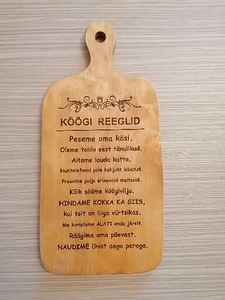 KÖÖGI REEGLID
Peseme oma käsi.
Oleme toidu eest tänulikud.
Aitame lauda katta.
Nutitelefonid pole kohjukt lubatud.
Proovime palju erinevaid maitseid.
Kõik sööme köögivilju.
HINDAME KOKKA KA SIIS,
kui toit on liiga vürtsikas.
Me koristame ALATI enda järelt.
Räägime oma päevast.
NAUDIME ühist aega perega.